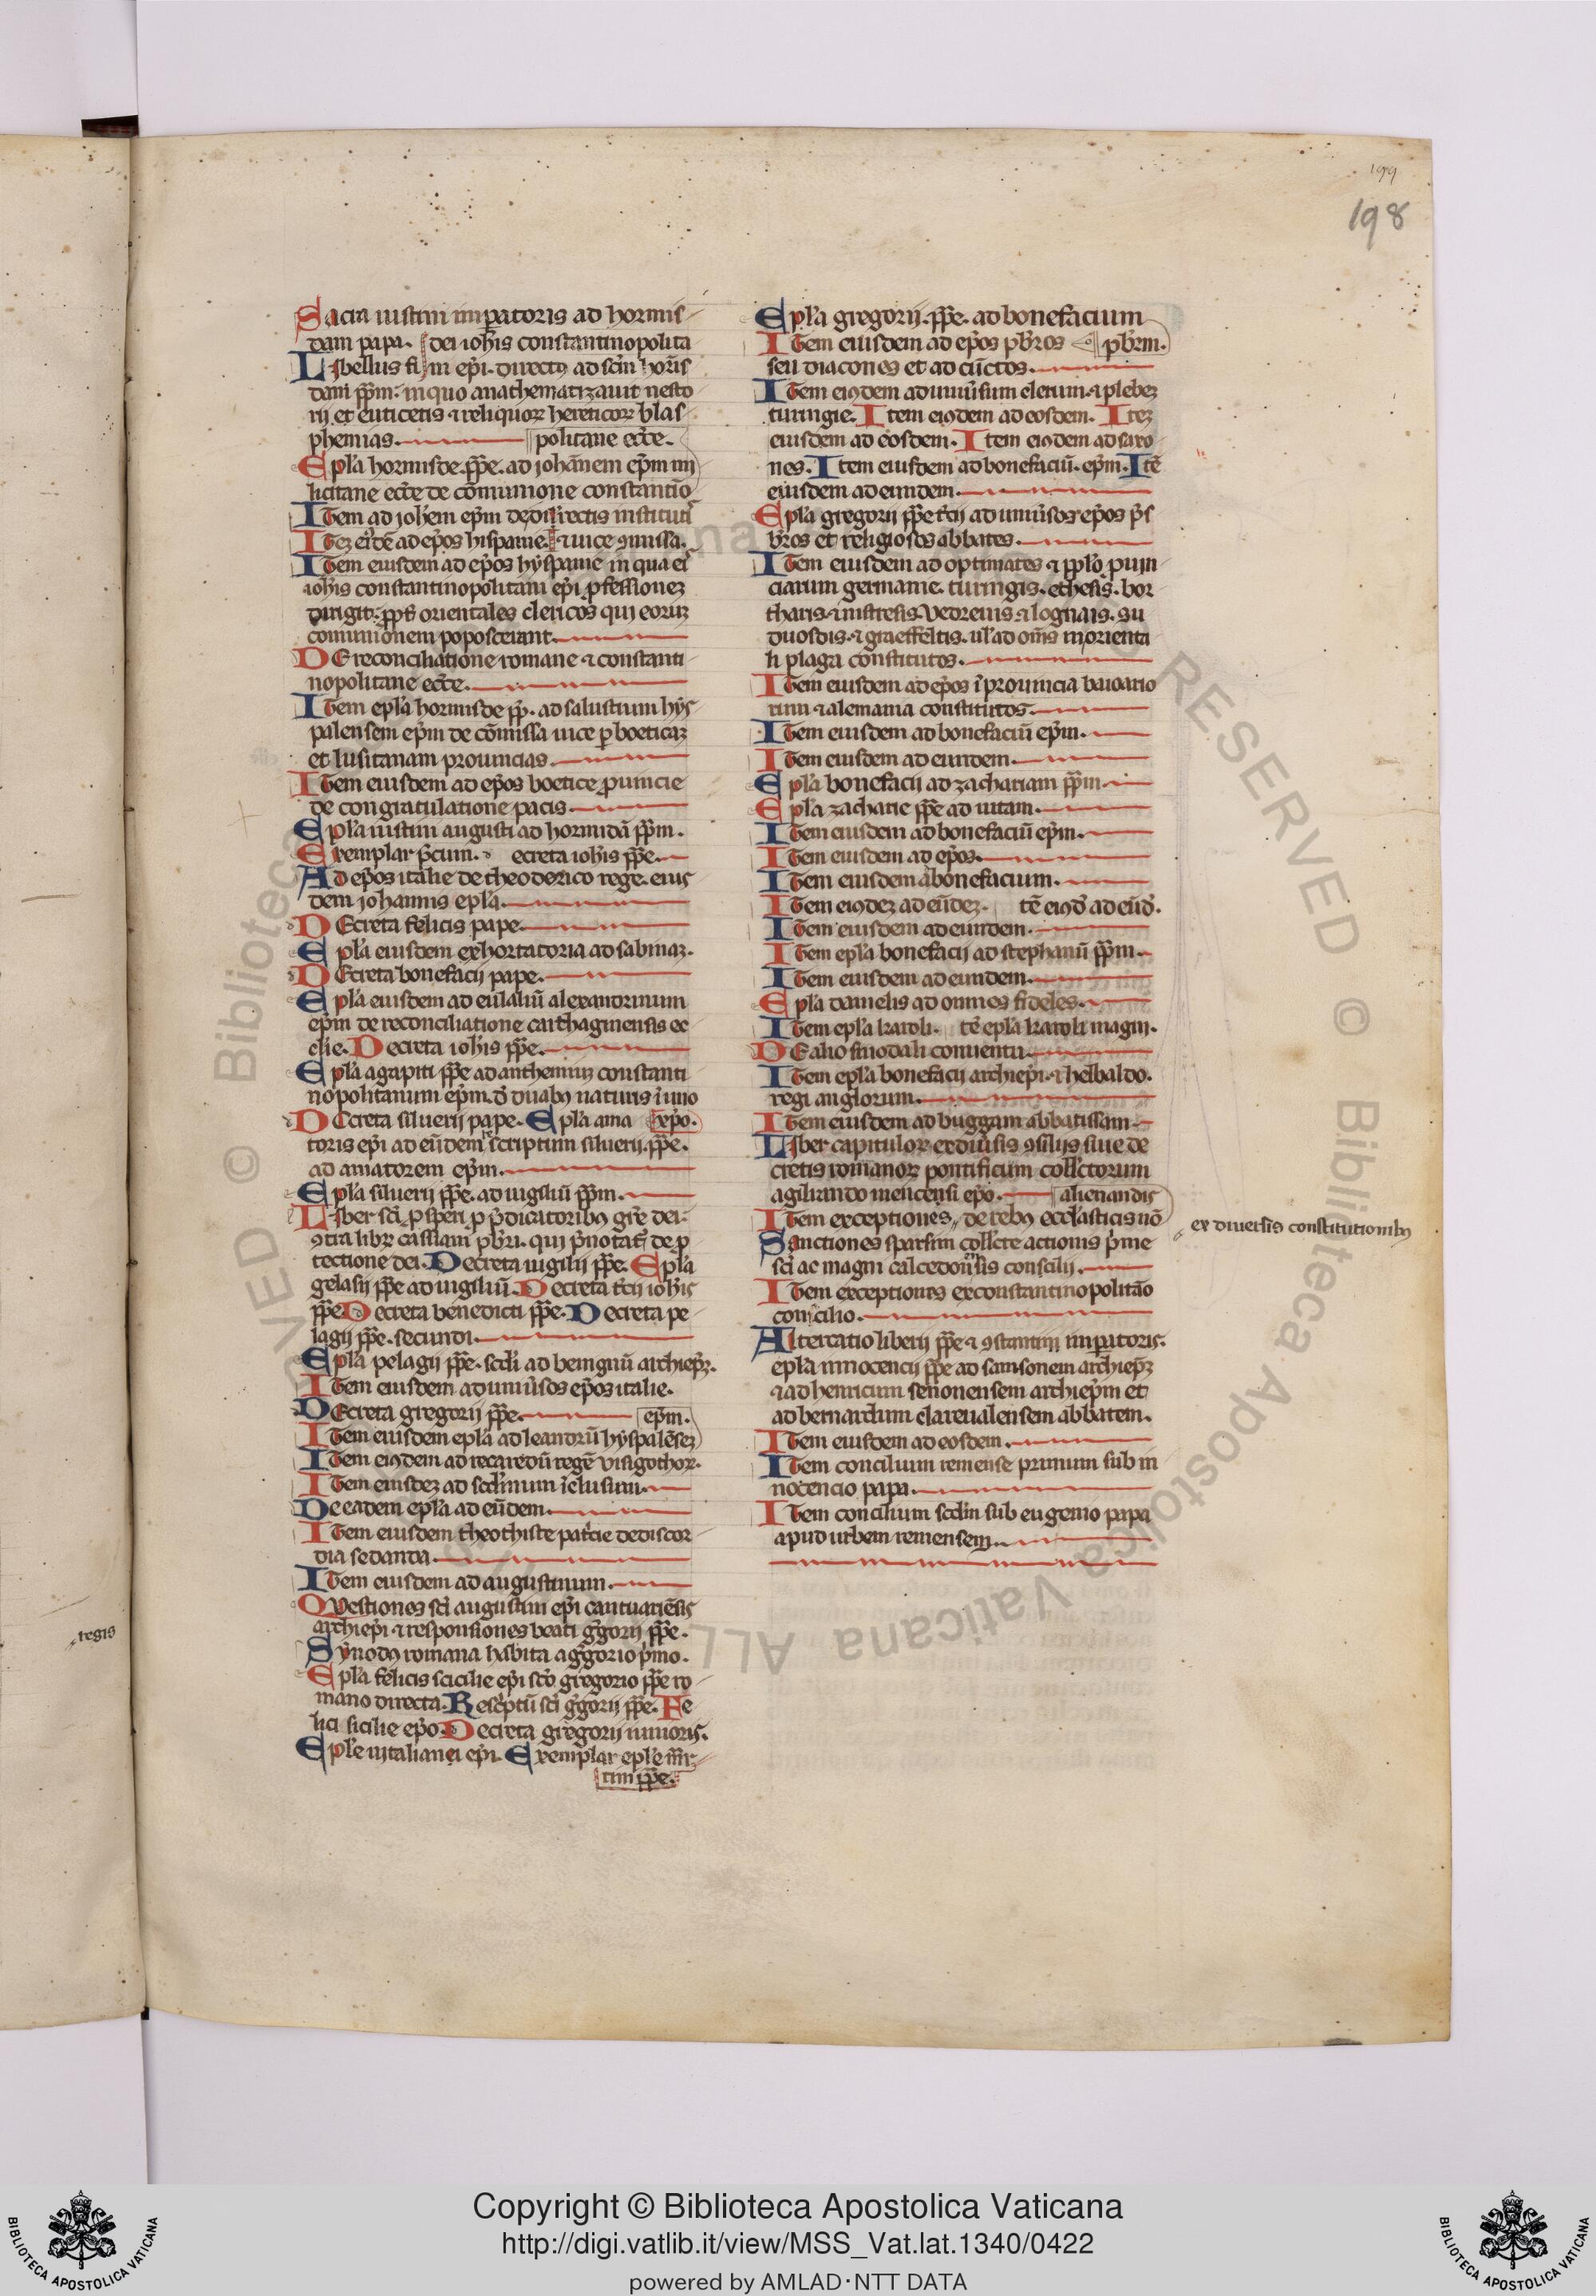 199
198
Sacra iustini imꝑatoris ad hormis
dam papa. dei ioh̃is constantinopolita
Libellus fi ni ep̃i. directꝰ ad sc̃m hor̃is
dam pp̃m: in quo anathematizauit nesto
rij et euticetis ⁊ reliquoꝝ hereticoꝝ blas
phemias. politane ecc̃e.
Epl̃a hormisde. pp̃e. ad johãnem ep̃m mi
licitane ecc̃e de cõmunione constantio
Item ad joh̃em ep̃m
Itez ei᷒dẽ ad ep̃os hispanie. ⁊ uice ꝯmissa.
Item eiusdem ad ep̃os hyspanie in qua ei᷒
ioh̃is constantinopolitani ep̃i ꝓfessionez
dirigit: orientales clericos qui eorum
comunionem poposcerant.
DE reconciliatione romane ⁊ constanti
nopolitane ecc̃e.
Item epl̃a hormisde pp̃. ad salustium hys
palensem ep̃m de cõmissa uice ꝑ boeticaz
et lusitanam prouincias.
Item eiusdem ad ep̃os boetice ꝓuincie
de congratulatione pacis.
Epl̃a iustini augusti ad hormidã pp̃m.
Exemplar p̃cum. ecreta ioh̃is pp̃e.
Ad ep̃os italie de theoderico rege. eius
dem johannis epl̃a.
DEcreta felicis pape.
Epl̃a eiusdem exhortatoria ad sabinaz.
DEcreta bonefacij pape.
Epl̃a eiusdem ad eulaliũ alexandrinum
ep̃m de reconciliatione carthaginensis ec
clie. Decreta ioh̃is pp̃e.
Epl̃a agapiti pp̃e ad anthemiuz constanti
nopolitanum ep̃m. d̃ duabꝰ naturis ĩ uno
Decreta siluerij pape. Epl̃a ama xp̃o.
toris ep̃i ad eũdem scriptum siluerij. pp̃e.
ad amatorem ep̃m.
Epl̃a siluerij pp̃e. ad uigiliũ pp̃m.
Liber sc̃i ꝓsperi ꝓ p̃dicatoribꝰ gr̃e dei.
ꝯtra libꝝ cassiani pb̃ri. qui p̃notat᷒ de ꝓ
tectione dei. Decreta uigilij pp̃e. Epl̃a
gelasij pp̃e ad uigiliũ. Decreta t̃cij ioh̃is
pp̃e Decreta benedicti pp̃e. Decreta pe
lagij pp̃e. secundi.
Epl̃a pelagij pp̃e. scd̃i ad benignũ archiep̃z.
Item eiusdem ad uniũsos ep̃os italie.
DEcreta gregorij pp̃e. ep̃m.
Item eiusdem epl̃a ad leandrũ hyspalẽsez
Item eiꝰdem ad recaredũ regẽ visigothoꝝ.
Item eiusdez ad scd̃inum ĩclusum.
De eadem epl̃a ad eũdem.
Item eiusdem theothiste pat̃cie de discor
dia sedanda.
Item eiusdem ad augustinum.
QVestiones sc̃i augustini ep̃i cantuariẽsis
archiep̃i ⁊ responsiones beati g̃gorij pp̃e.
Synodꝰ romana habita a g̃gorio p̃mo.
Epl̃a felicis scicilie ep̃i sc̃o gregorio pp̃e ro
mano directa. Resc̃ptũ sc̃i g̃gorij pp̃e. Fe
lici sicilie ep̃o. Decreta gregorij iunioris.
Epl̃e uitaliani ep̃i. Exemplar epl̃e mar
tini pp̃e.
Epl̃a gregorij. pp̃e. ad bonefacium
Item eiusdem ad ep̃os pb̃ros pb̃rm.
seu diacones et ad cũctos.
Item eiꝰdem ad uniũsum clerum. ⁊ plebez
turingie. Item eiꝰdem ad eosdem. Itez
eiusdem ad eosdem. Item eiꝰdem ad saxo
nes. Item eiusdem ad bonefaciũ. ep̃m. Itẽ
eiusdem ad eundem.
Epl̃a gregorij pp̃e t̃cij ad uniũsos ep̃os p̃s
b̃ros et religiosos abbates.
Item eiusdem ad optimates ⁊ ppl̃o ꝓuin
ciarum germanie. turingis. ethesis. bor
tharis. ⁊ nistresis. vedreuis. ⁊ lognais. su
duosdis. ⁊ graeffeltis. ul̃ ad om̃s in orienta
li plaga constitutos.
Item eiusdem ad ep̃os ĩ prouincia baioario
rum ⁊ alemania constitutos.
Item eiusdem ad bonefaciũ ep̃m.
Item eiusdem ad eundem.
Epl̃a bonefacij ad zachariam pp̃m.
Epl̃a zacharie pp̃e ad uitam.
Item eiusdem ad bonefaciũ ep̃m.
Item eiusdem ad ep̃os.
Item eiusdem a bonefacium.
Item eiꝰdez ad eũdez. tẽ eiꝰd̃ ad eũd̃.
Item eiusdem ad eundem.
Item epl̃a bonefacij ad stephanũ pp̃m.
Item eiusdem ad eundem.
Epl̃a danielis ad omnes fideles.
Item epl̃a karoli. tẽ epl̃a karoli magni.
DE alio sinodali conuentu.
Item epl̃a bonefacij archiep̃i. ⁊ helbaldo.
regi anglorum.
Item eiusdem ad buggam abbatissam
Liber capituloꝝ ex diũsis ꝯsilijs siue de
cretis romanoꝝ pontificum coll̃ctorum
agilirando mencensi ep̃o. alienandis
Item exceptiones de rebꝰ eccl̃asticis nõ
ex diuersis constitutionibꝰ
Sanctiones sparsim coll̃cte actionis p̃me
sc̃i ac magni calcedon̄sis conscilij.
Item exceptiones ex constantinopolitão
conscilio.
Altercatio liberij pp̃e ⁊ ꝯstantini imꝑatoris.
epl̃a innocencij pp̃e ad samsonem archiep̃z
⁊ ad henricum senonensem archiep̃m et
ad bernardum clareualensem abbatem.
Item eiusdem ad eosdem.
Item concilium remense primum sub in
nocencio papa.
Item concilium scd̃m sub eugenio papa
apud urbem remensem.
regis
Copyright © Biblioteca Apostolica Vaticana
http://digi.vatlib.it/view/MSS_Vat.lat.1340/0422
powered by AMLAD·NTT DATA
BIBLIOTECA APOSTOLICA VATICANA
BIBLIOTECA APOSTOLICA VATICANA